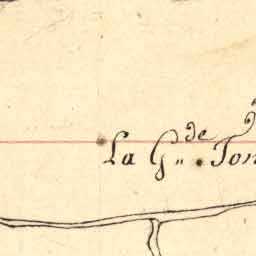 La G.de Ton